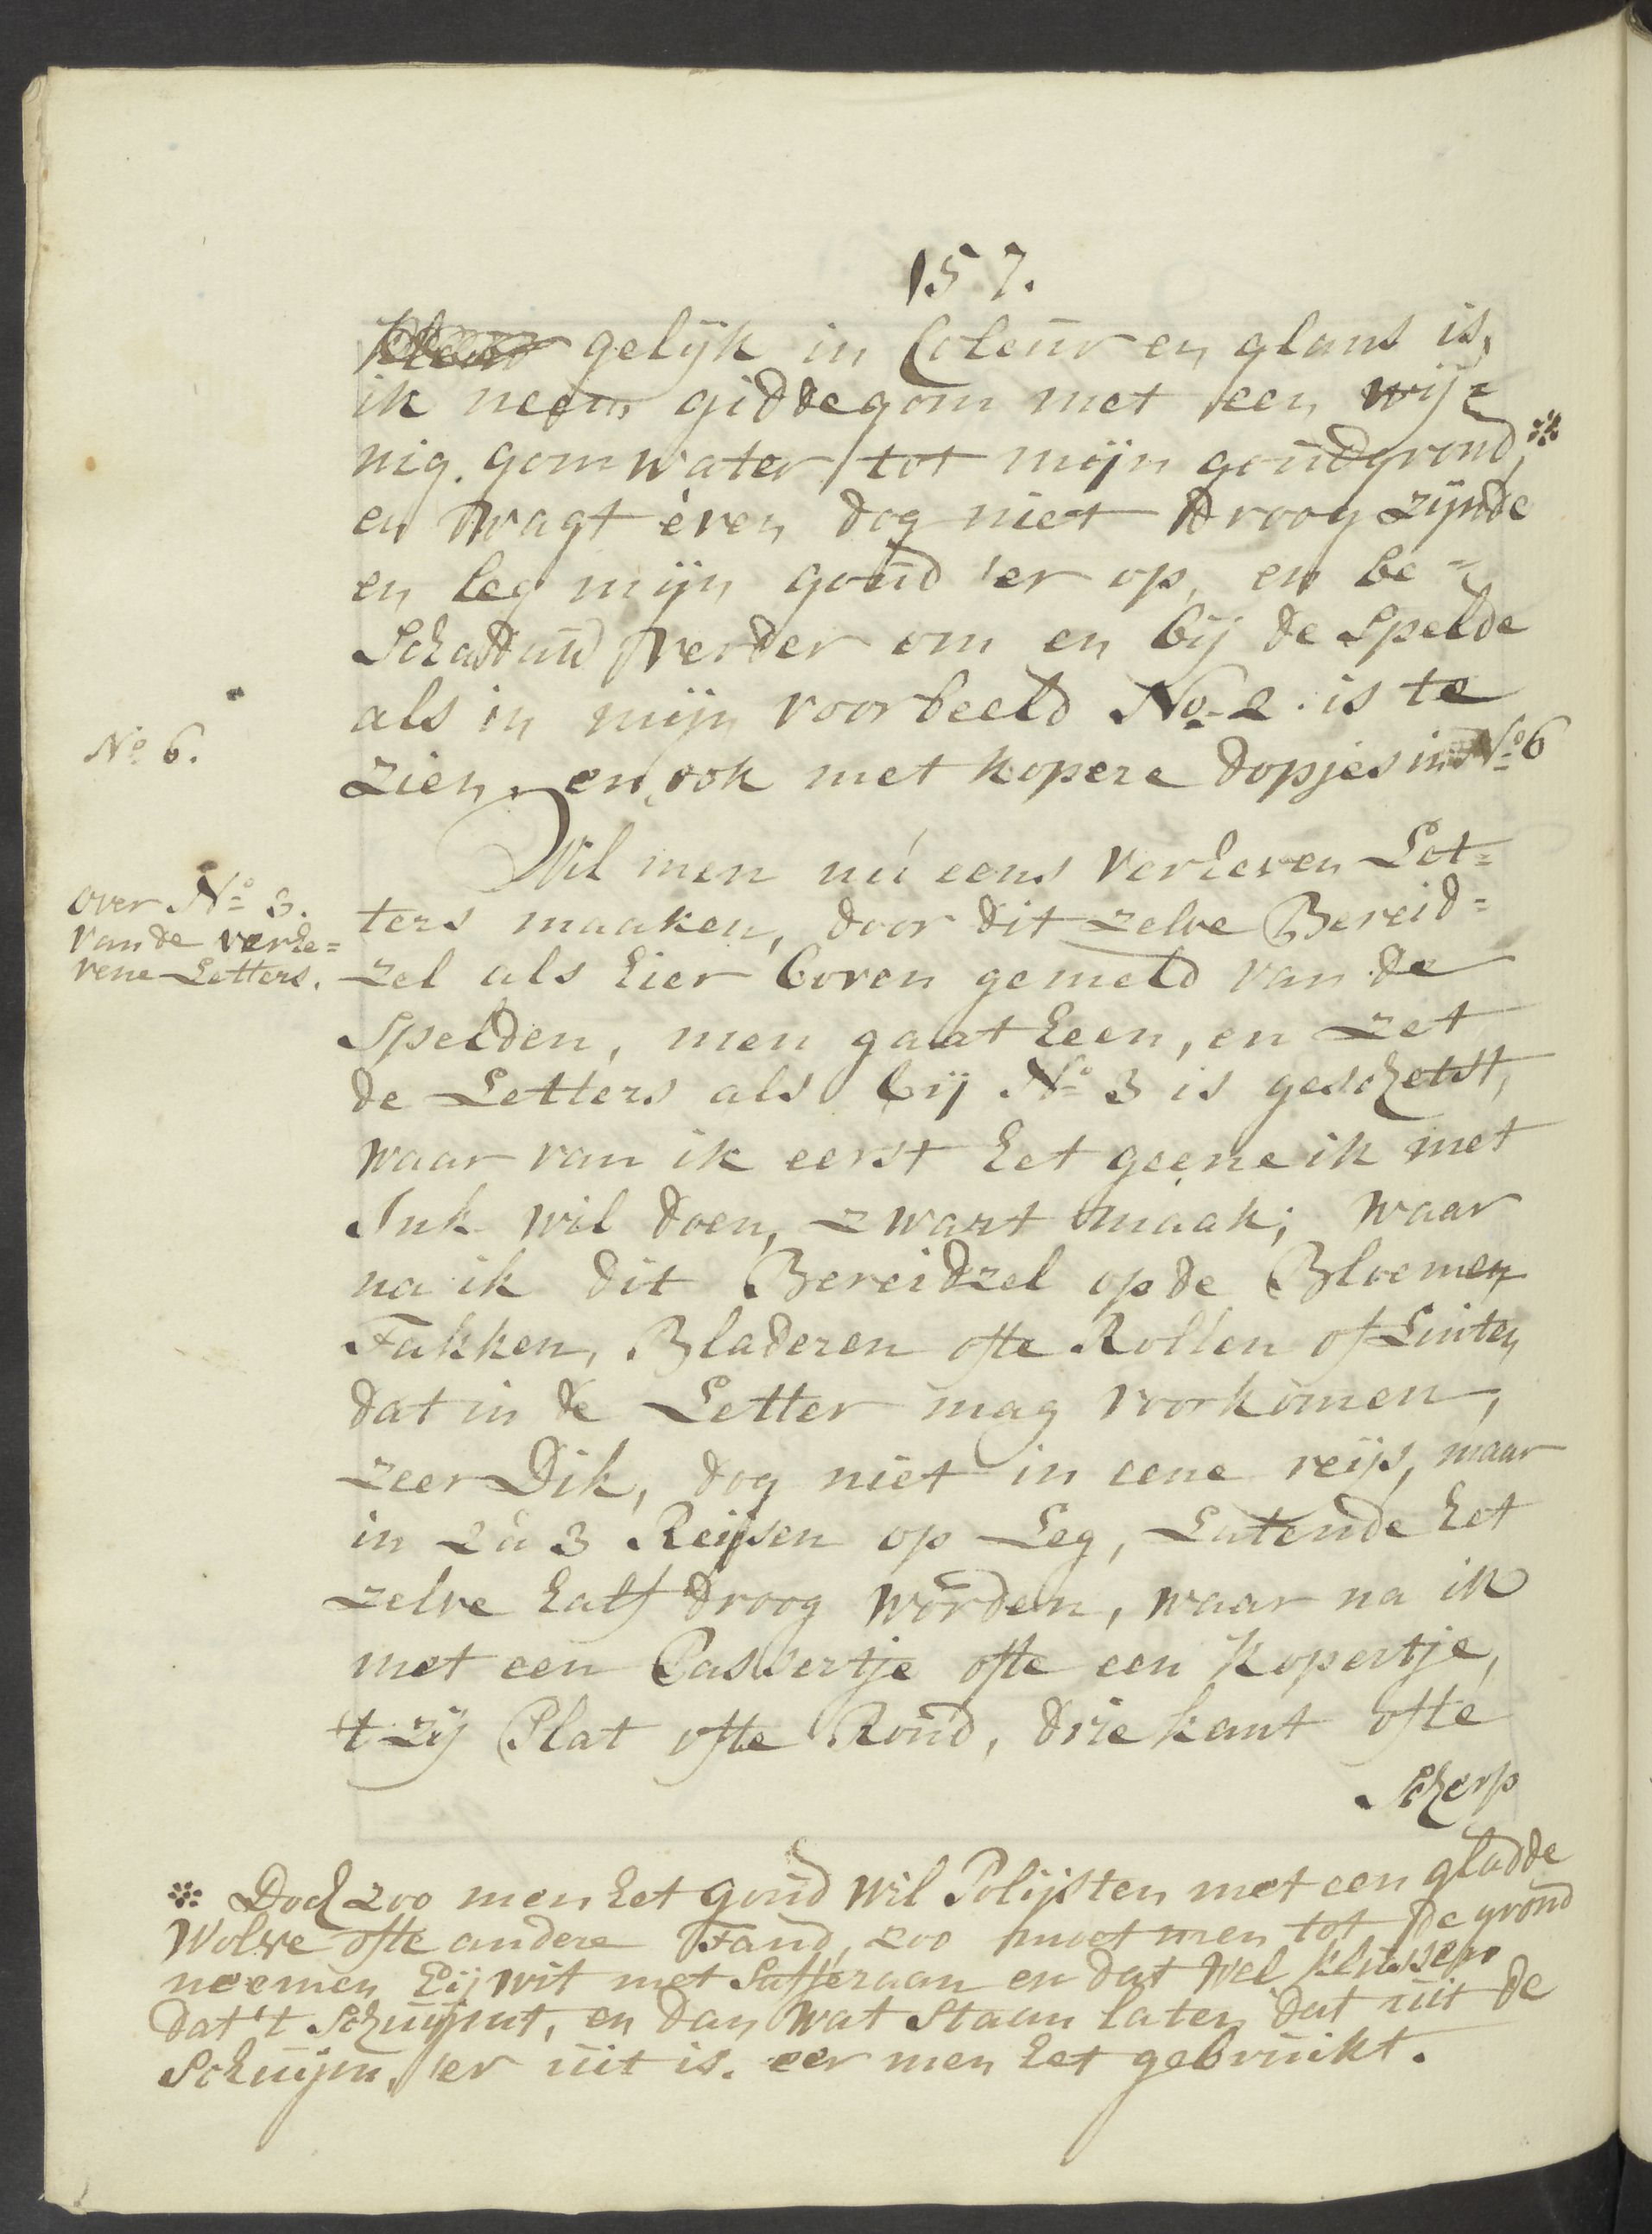 157.
gelijk in Coleur en glans is,
ik neem giddegom met een wij=
nig. gomwater tot mijn goudgrond,*
en wagt even dog niet droog zijnde
en leg mijn goud 'er op, en be=
Schadúw verder om en bij de Spelde
als in mijn voorbeeld No. 2. is te
No 6.
zien, en ook met kopere dopjes in No 6
Wil men nú eens verheven Let=
over No 3.
van de verhe=
vene Letters.
ters maaken, door dit zelve Bereid=
zel als hier boven gemeld van de
Spelden, men gaat heen, en zet
de Letters als bij No 3 is geschetst,
waar van ik eerst het geene ik met
Ink wil doen, zwart maak; waar
na ik dit Bereidzel op de Bloemen
Takken, Bladeren ofte Rollen of Linten
dat in de Letter mag voorkomen,
zeer Dik, dog niet in eene reijs, maar
in 2 à 3 Reijsen op Leg, Latende het
zelve half droog worden, waar na ik
met een Passertje ofte een kopertje,
't zij Plat ofte Rond, driekant ofte
Scherp
* Doch zoo men het goud wil Polijsten met een gladde
Wolve ofte andere Tand, zoo moet men tot de grond
neemen Eijwit met Safferaan en dat wel klússen
dat 't Schuijmt, en dan wat Staan laten dat uit de
Schuijm 'er uit is. eer men het gebruikt.